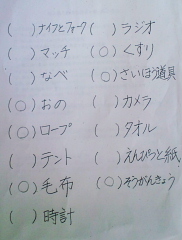 (　) ナイフとフォーク (　) ラジオ
(　) マッチ (○) くすり
(　) なべ (○) さいほう道具
(○) おの (　) カメラ
(○) ロープ (　) タオル
(　) テント (　) えんぴつと紙
(○) 毛布 (○) そうがんきょう
(　) 時計